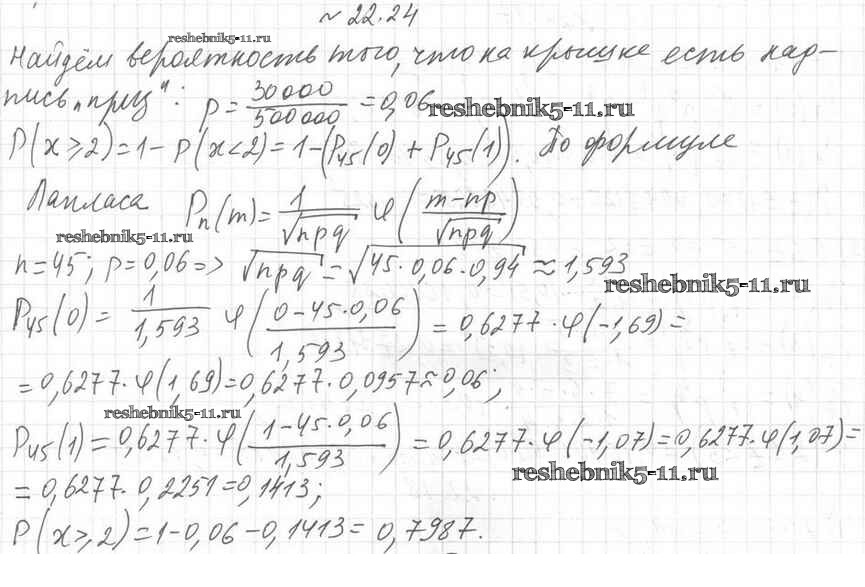 № 22.24
reshebnik5-11.ru
Найдём вероятность того, что на крышке есть над-
пись „приз": p = 30000/500000 = 0,06
reshebnik5-11.ru
P(x ≥ 2) = 1 - P(x < 2) = 1 - (P₄₅(0) + P₄₅(1)). По формуле
Лапласа Pₙ(m) = 1/√npq φ((m-np)/√npq)
reshebnik5-11.ru
n = 45; p = 0,06 => √npq = √45·0,06·0,94 ≈ 1,593
reshebnik5-11.ru
P₄₅(0) = 1/1,593 φ((0-45·0,06)/1,593) = 0,6277·φ(-1,69) =
= 0,6277·φ(1,69) = 0,6277·0,0957 ≈ 0,06;
reshebnik5-11.ru
P₄₅(1) = 0,6277·φ((1-45·0,06)/1,593) = 0,6277·φ(-1,07) = 0,6277·φ(1,07) =
reshebnik5-11.ru
= 0,6277·0,2251 = 0,1413;
P(x ≥ 2) = 1 - 0,06 - 0,1413 = 0,7987.